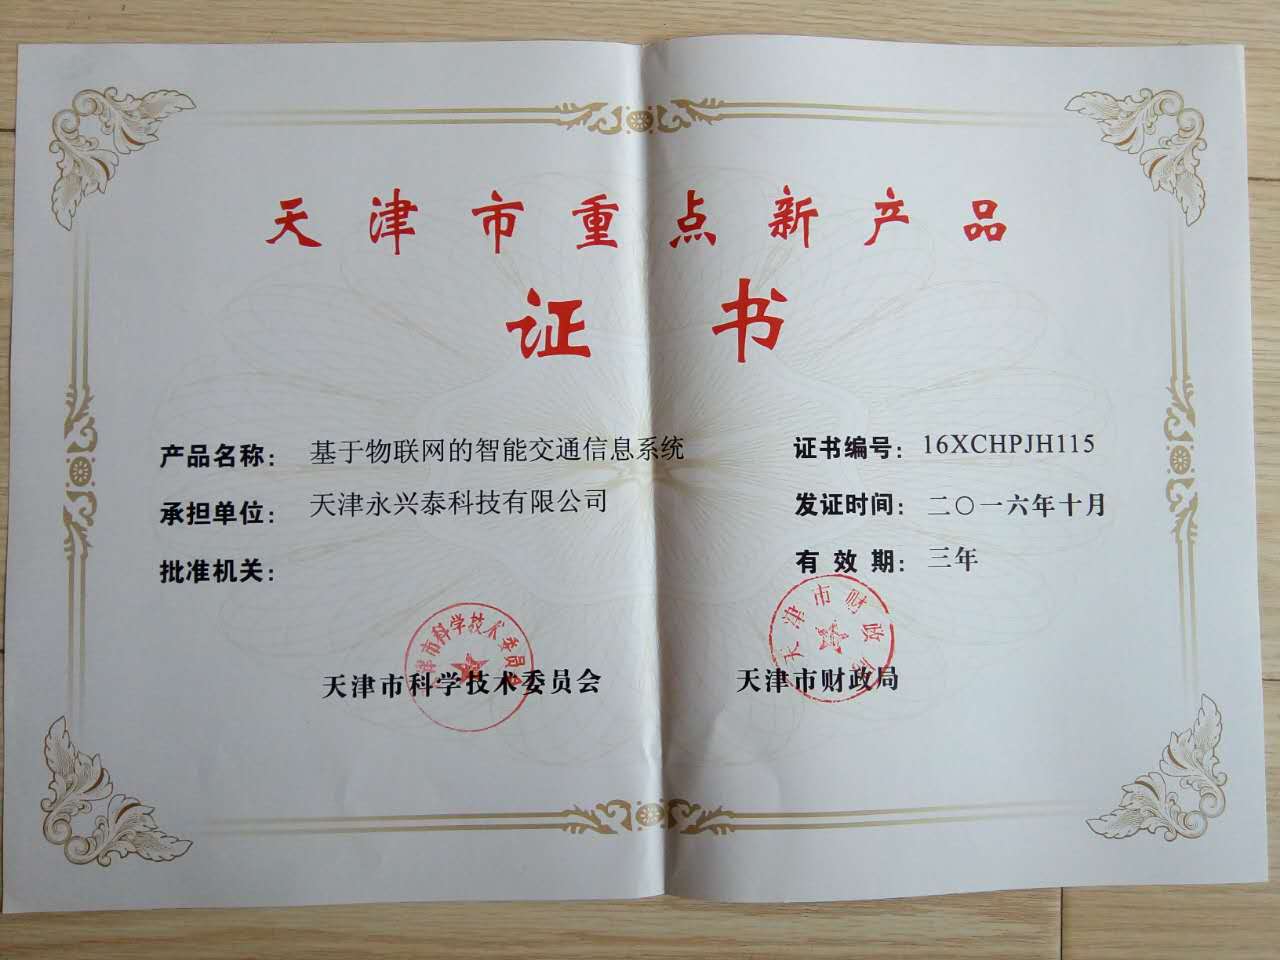 天津市重点新产品
证书
产品名称：基于物联网的智能交通信息系统
承担单位：天津永兴泰科技有限公司
批准机关：
证书编号：16XCHPJH115
发证时间：二〇一六年十月
有效期：三年
天津市科学技术委员会
天津市财政局
天津市科学技术委员会
天津市财政局